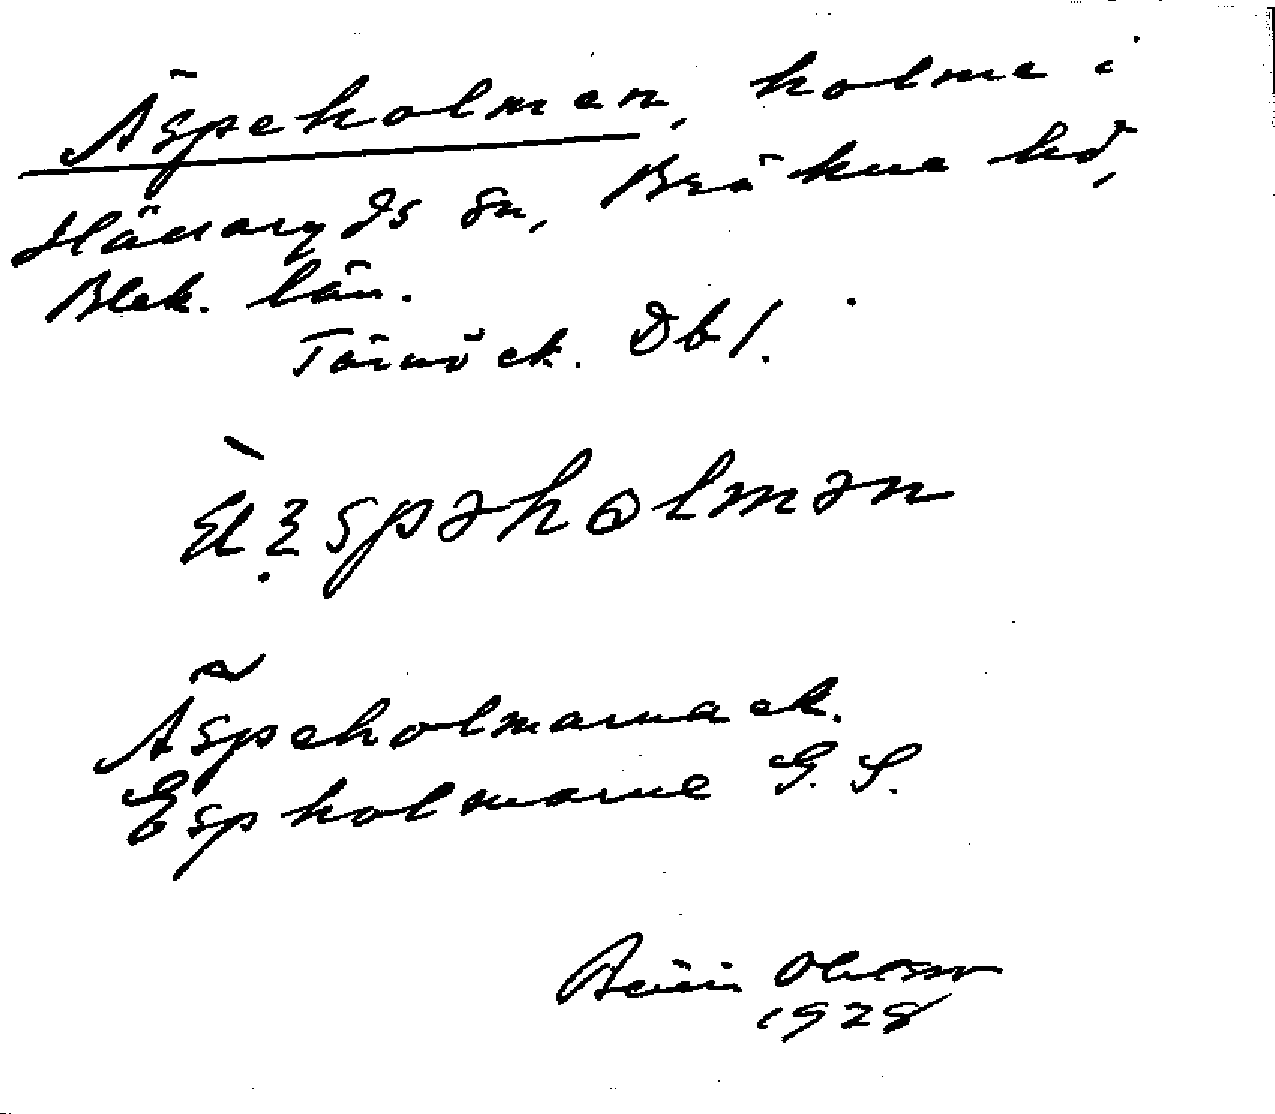 Äspeholmen, holme i
Hällaryds sn, Bräkne hd,
Blek. län.
Tärnö ek. Db 1.
spəholmən
Äspeholmarna ek.
Espholmarne G. S.
Ohlson
1928